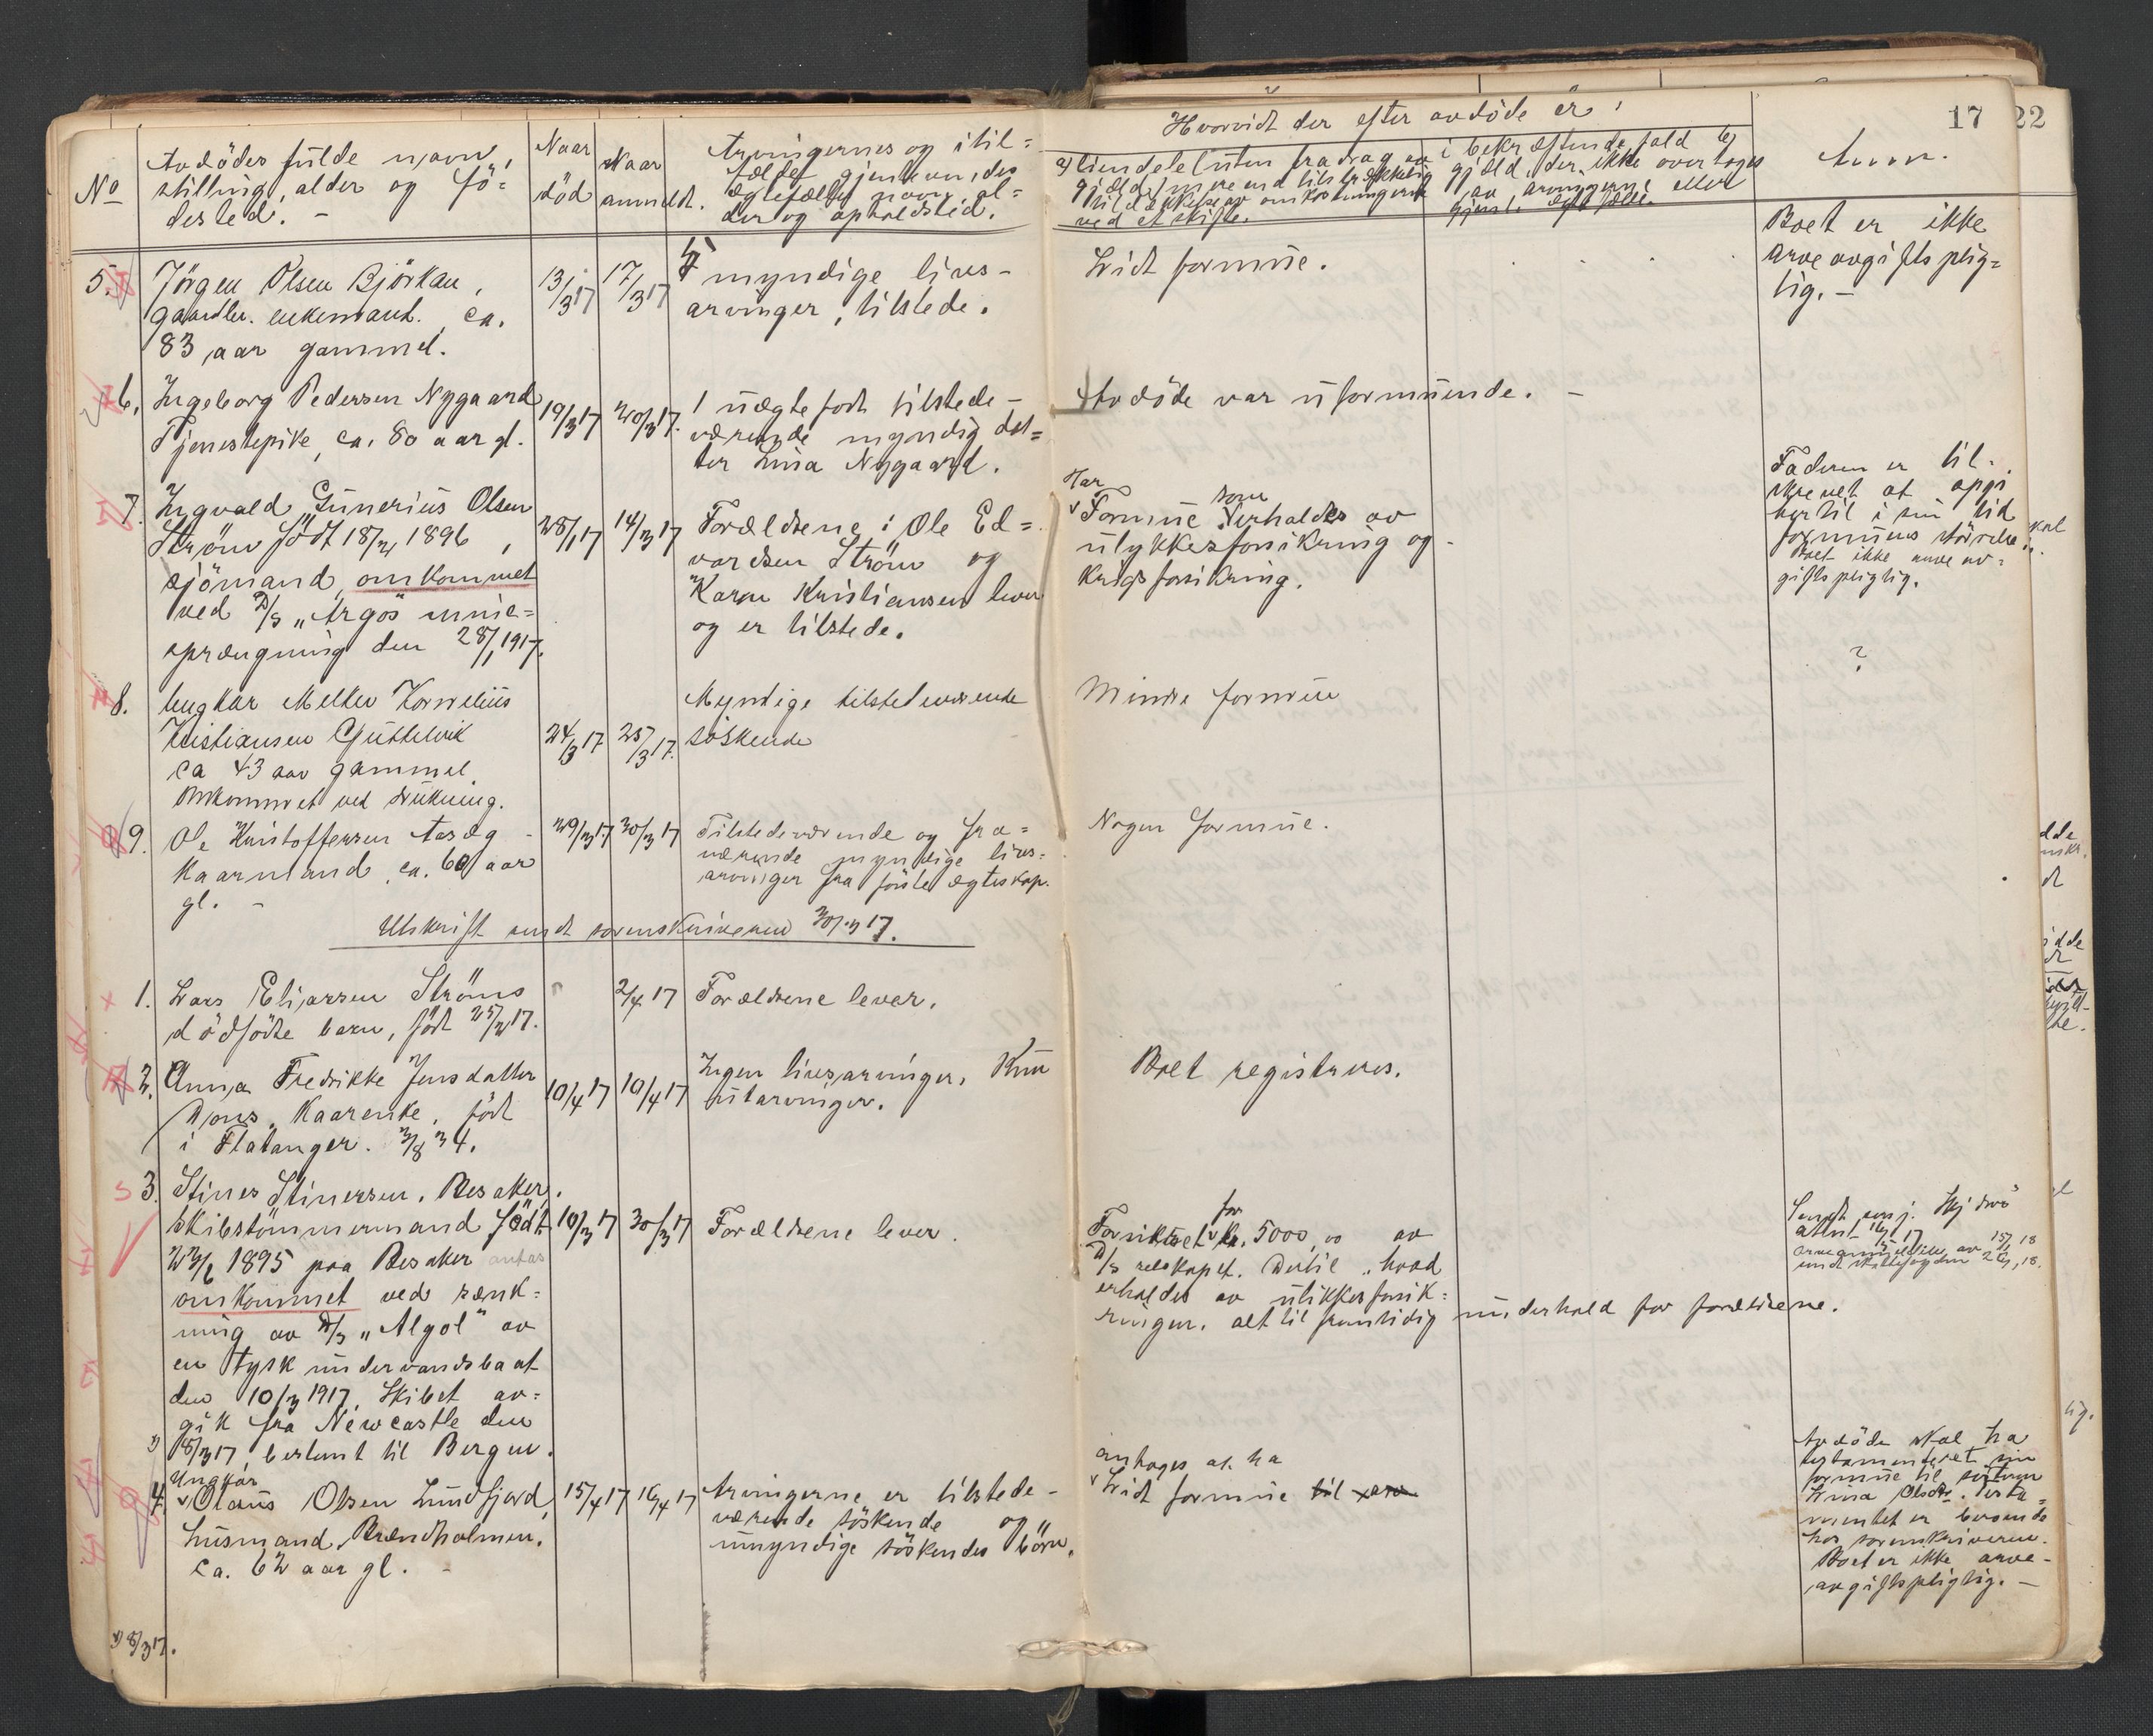 17 22
No
Avdödes fulde navn,
stilling, alder og fö=
dested. -
Naar
död
Naar
anmeldt.
Arvingernes og i til=
fælde gjenlevendes
ægtefælles navn, al=
der og opholdsted.
Hvorvidt der efter avdöde er:
a) Eiendele uten fradrag av
gjæld mere end tilstrækkelig
til dækkelse av omkostningerne
ved et skifte.
i bekræftende fald b)
gjæld, der ikke overtages
av arvingerne eller
gjenl. ægtefælle.
Anm.
5. Jörgen Olsen Björkan,
gaardbr. enkemand. ca.
83 aar gammel.
13/3 17
17/3 17
5 myndige livs-
arvinger, tilstede.
Lidt formue.
Boet er ikke
arveavgiftsplig=
tig. -
6. Ingeborg Pedersen Nygaard
Tjenestepike, ca. 80 aar gl.
19/3 17
20/3 17.
1 uægte født tilstede-
værende myndig dat=
ter Lina Nygaard.
Avdöde var uformuende. -
7. Ingvald Gunerius Olsen
Ström födt 18/2 1896,
sjömand, omkommet
ved D/S "Argos" mine=
sprængning den 28/1 1917.
28/1 17
14/3 17
Forældrene: Ole Ed=
vardsen Ström og
Karen Kristiansen lever
og er tilstede.
Har
Formue som erholdes av
ulykkesforsikring og
krigsforsikring.
Faderen er til-
skrevet at opgi
hertil i sin tid
formuens störrelse.
Boet ikke arveav=
giftspligtig.
8. Ungkar Melker Kornelius
Kristiansen Guttelvik
ca 43 aar gammel.
Omkommet ved drukning.
24/3 17
25/3 17.
Myndige tilstedeværende
söskende
Mindre formue
?
9. Ole Kristoffersen Aasæg -
Kaarmand, ca. 60 aar
gl. -
29/3 17
30/3 17
Tilstedeværende og fra=
værende myndige livs=
arvinger fra förste ægteskap.
Nogen formue.
Utskrift sendt sorenskriveren 30/3 17.
1. Lars Eliassen Ströms
dödfödte barn, födt 25/2 17.
2/4 17
Forældrene lever.
2. Anna Fredrikke Jensdatter
Dons, Kaarenke, födt
i Flatanger. 3/8 34.
10/4 17
10/4 17
Ingen livsarvinger. Kun
utarvinger.
Boet registreres.
3. Stines Stinersen, Besaker,
skibstömmermand födt
23/6 1895 paa Besaker antas
omkommet ved sænk=
ning av D/S "Algol" av
en tysk undervandsbaat
den 10/3 1917. Skibet av=
gik fra Newcastle den
x) 8/3 17 bestemt til Bergen.
10/3 17
30/3 17
Forældrene lever.
Forsikret for kr. 5000,00 av
D/S selskapet. Dertil hvad
erholdes av ulikkesforsik=
ringen. alt til fremtidig underhold for forældrene.
4. Ungkar
Olaus Olsen Lundfjord,
husmand, Brændholmen.
ca. 62 aar gl. -
15/4 17
16/4 17
Arvingerne er tilstede-
værende söskende og
umyndige söskendes börn.
antages at ha
Lidt formue
Avdöde skal ha
testamenteret sin
formue til söstren
Lina Olsdtr. Testa=
mentet er beroende
hos sorenskriveren.
Boet er ikke arve-
avgiftspligtig. -
x) 8/3 17.